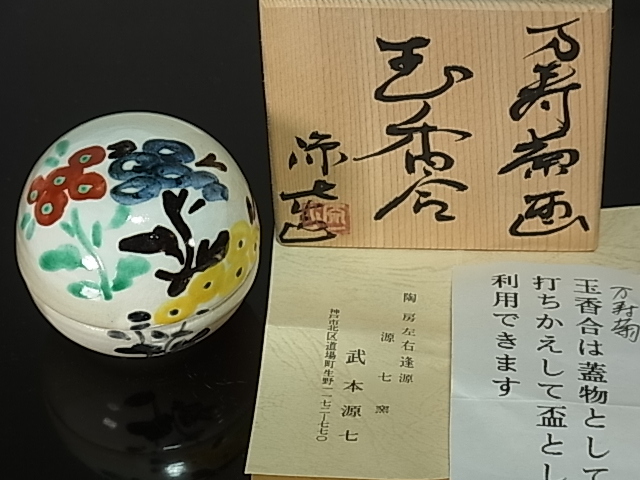 万寿菊画
玉香合
源七造
陶房左右逢源
源七窯
武本源七
神戸市北区道場町生野一一七二ー七七〇
万寿菊
玉香合は蓋物として
打ちかえして盃とし
利用できます